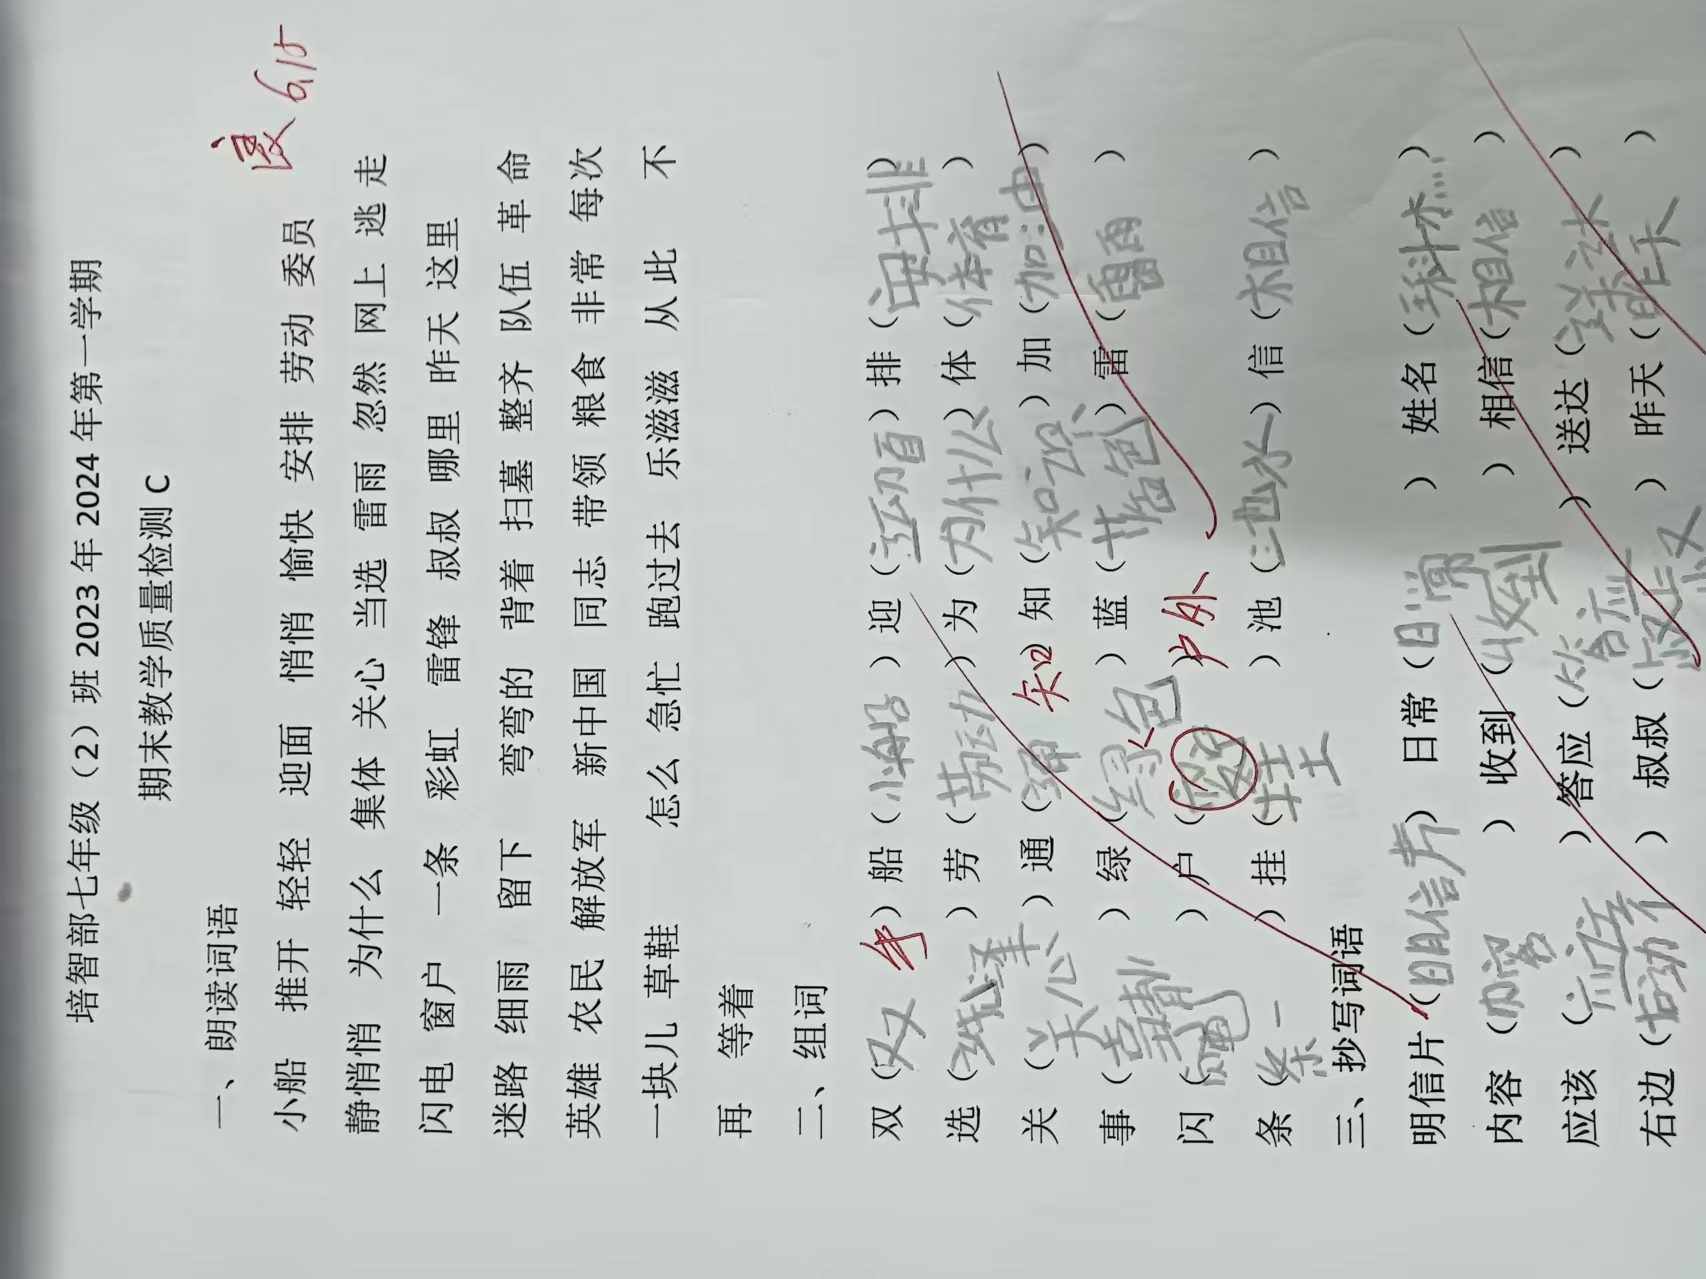 培智部七年级（2）班 2023 年 2024 年第一学期
期末教学质量检测 C
良 61.5
一、朗读词语
小船 推开 轻轻 迎面 悄悄 愉快 安排 劳动 委员
静悄悄 为什么 集体 关心 当选 雷雨 忽然 网上 逃走
闪电 窗户 一条 彩虹 雷锋 叔叔 哪里 昨天 这里
迷路 细雨 留下 弯弯的 背着 扫墓 整齐 队伍 革命
英雄 农民 解放军 新中国 同志 带领 粮食 非常 每次
一块儿 草鞋 怎么 急忙 跑过去 乐滋滋 从此 不
再 等着
二、组词
双（双 手）船（小船）迎（ ）排（安排）
选（ ）劳（劳动）为（为什么）体（体育）
关（关心）通（ ）知（知 知）加（加油）
事（ ）绿（绿色）蓝（蓝色）雷（雷雨）
闪（闪电）户（ ）户外
条（条一）挂（挂）池（池水）信（相信）
三、抄写词语
明信片（明信片）日常（日常）姓名（ ）
内容（内容）收到（收到）相信（相信）
应该（应 ）答应（答应）送达（送达）
右边（右边）叔叔（叔叔）昨天（昨天）